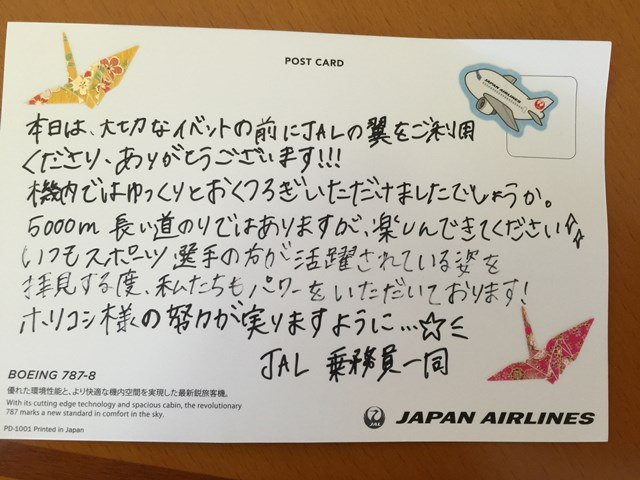 POST CARD
JAPAN AIRLINES
本日は、大切なイベントの前にJALの翼をご利用
くださり、ありがとうございます!!!
機内ではゆっくりとおくつろぎいただけましたでしょうか。
5000m 長い道のりではありますが、楽しんできてください
いつもスポーツ選手の方が活躍されている姿を
拝見する度、私たちもパワーをいただいております!
ホリコシ様の努力が実りますように…☆ミ
JAL 乗務員一同
BOEING 787-8
優れた環境性能と、より快適な機内空間を実現した最新鋭旅客機。
With its cutting edge technology and spacious cabin, the revolutionary
787 marks a new standard in comfort in the sky.
PD-1001 Printed in Japan
JAL JAPAN AIRLINES